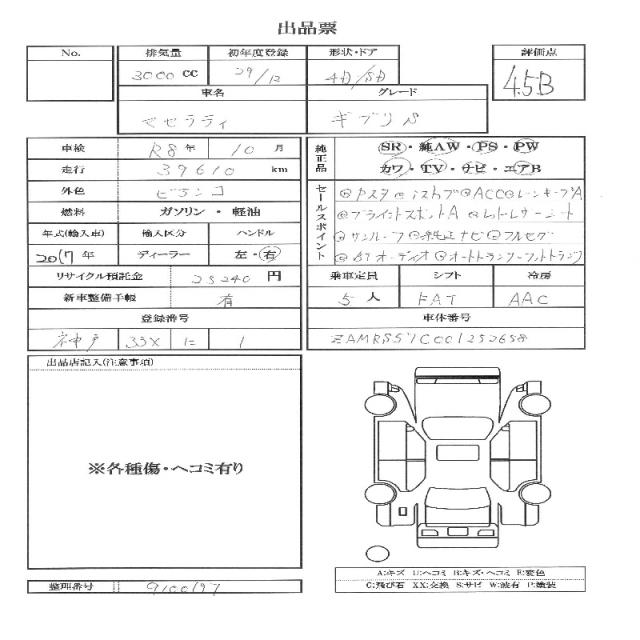 出品票
No. 排気量 3000 cc 初年度登録 29/12 形状・ドア 4D/5D 評価点 4.5B
車名 グレード
マセラティ ギブリ
車検 R8年 10月
走行 39610 km
外色 ビアンコ
燃料 ガソリン・軽油
年式(輸入車) 輸入区分 ハンドル
2017年 ディーラー 左・右
リサイクル預託金 円
新車整備手帳 有
登録番号
神戸 33X に 1
純正品 SR・純AW・PS・PW
カワ・TV・ナビ・エアB
セールスポイント
ACC レーンキープA
ブラインドスポットA レッドレザーシート
サンルーフ 純正ナビ フルセグ
BTオーディオ オートトランク
乗車定員 シフト 冷房
5人 FAT AAC
車体番号
出品店記入(注意事項)
※各種傷・ヘコミ有り
A:キズ U:ヘコミ B:キズ・ヘコミ E:変色
C:飛び石 XX:交換 S:サビ W:波有 P:塗装
整理番号 9100197